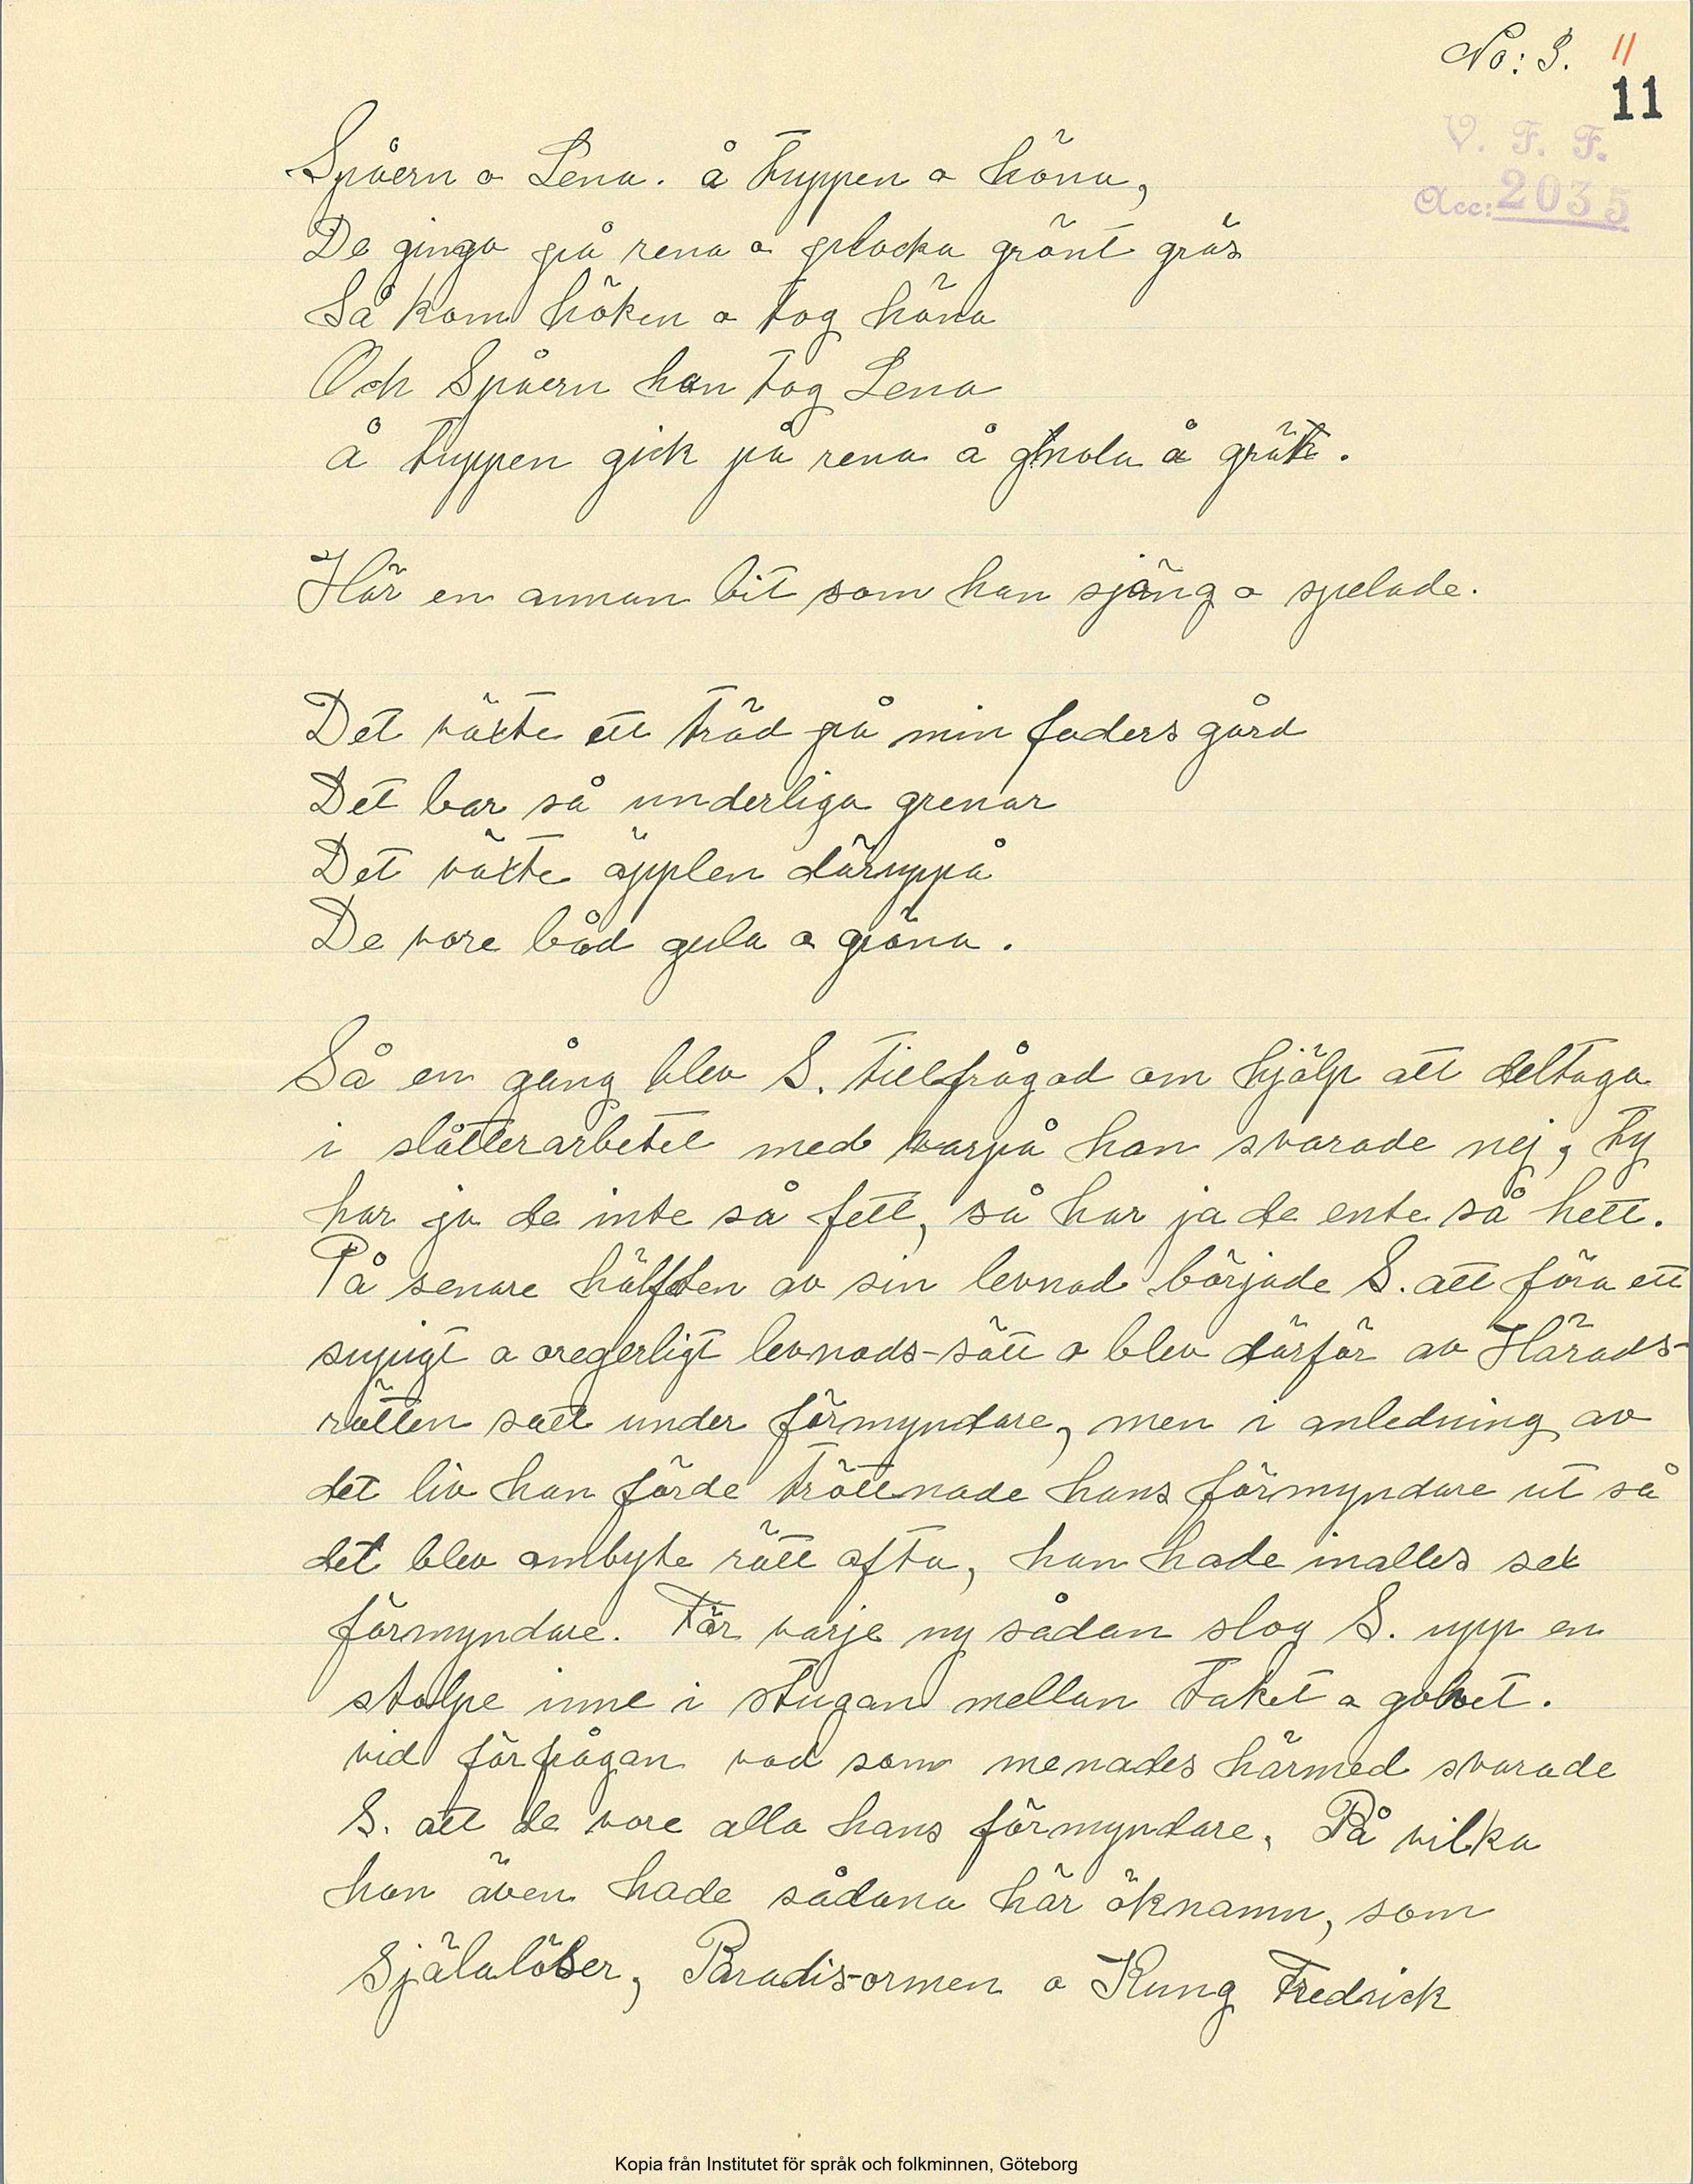 No: 3. 11
11
V. F. F.
Acc: 2035
Spåern o Lena. å tuppen o höna,
De ginga på rena o plocka grönt gräs
Så kom höken o tog höna
Och Spåern han tog Lena
å tuppen gick på rena å gnola å grät.
Här en annan bit som han sjöng o spelade.
Det växte ett träd på min faders gård
Det bar så underliga grenar
Det växte äpplen däruppå
De vore båd gula o gröna.
Så en gång blev S. tillfrågad om hjälp att deltaga
i slåtterarbetet med varpå han svarade nej, ty
har ja de inte så fett, så har ja de ente så hett.
På senare hälften av sin levnad började S. att föra ett
supigt o oregerligt levnads-sätt o blev därför av Härads-
rätten satt under förmyndare, men i anledning av
det liv han förde tröttnade hans förmyndare ut så
det blev ombyte rätt ofta, han hade inalles sex
förmyndare. För varje ny sådan slog S. upp en
stolpe inne i stugan mellan taket o golvet.
vid förfrågan vad som menades härmed svarade
S. att de vore alla hans förmyndare, På vilka
han även hade sådana här öknamn, som
Själalöser, Paradis-ormen o Kung Fredrick
Kopia från Institutet för språk och folkminnen, Göteborg